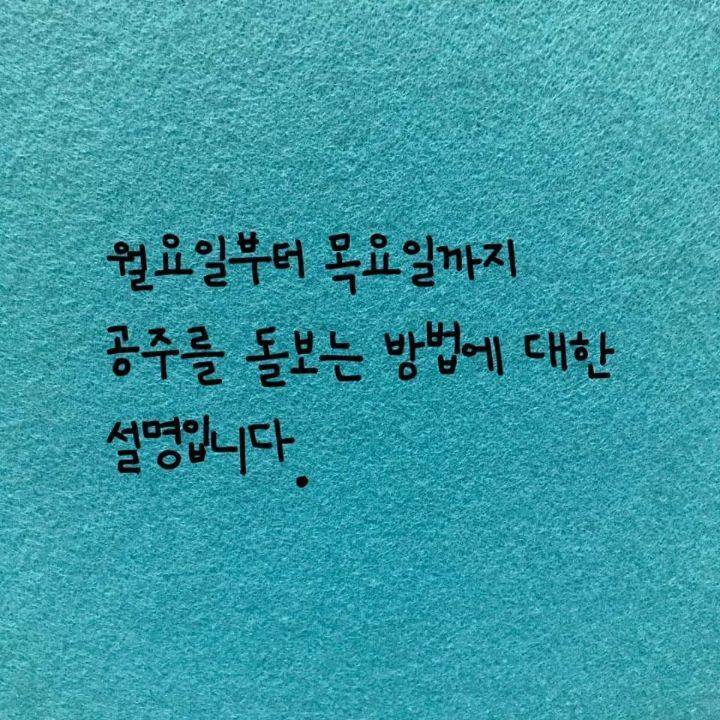 월요일부터 목요일까지
공주를 돌보는 방법에 대한
설명입니다.